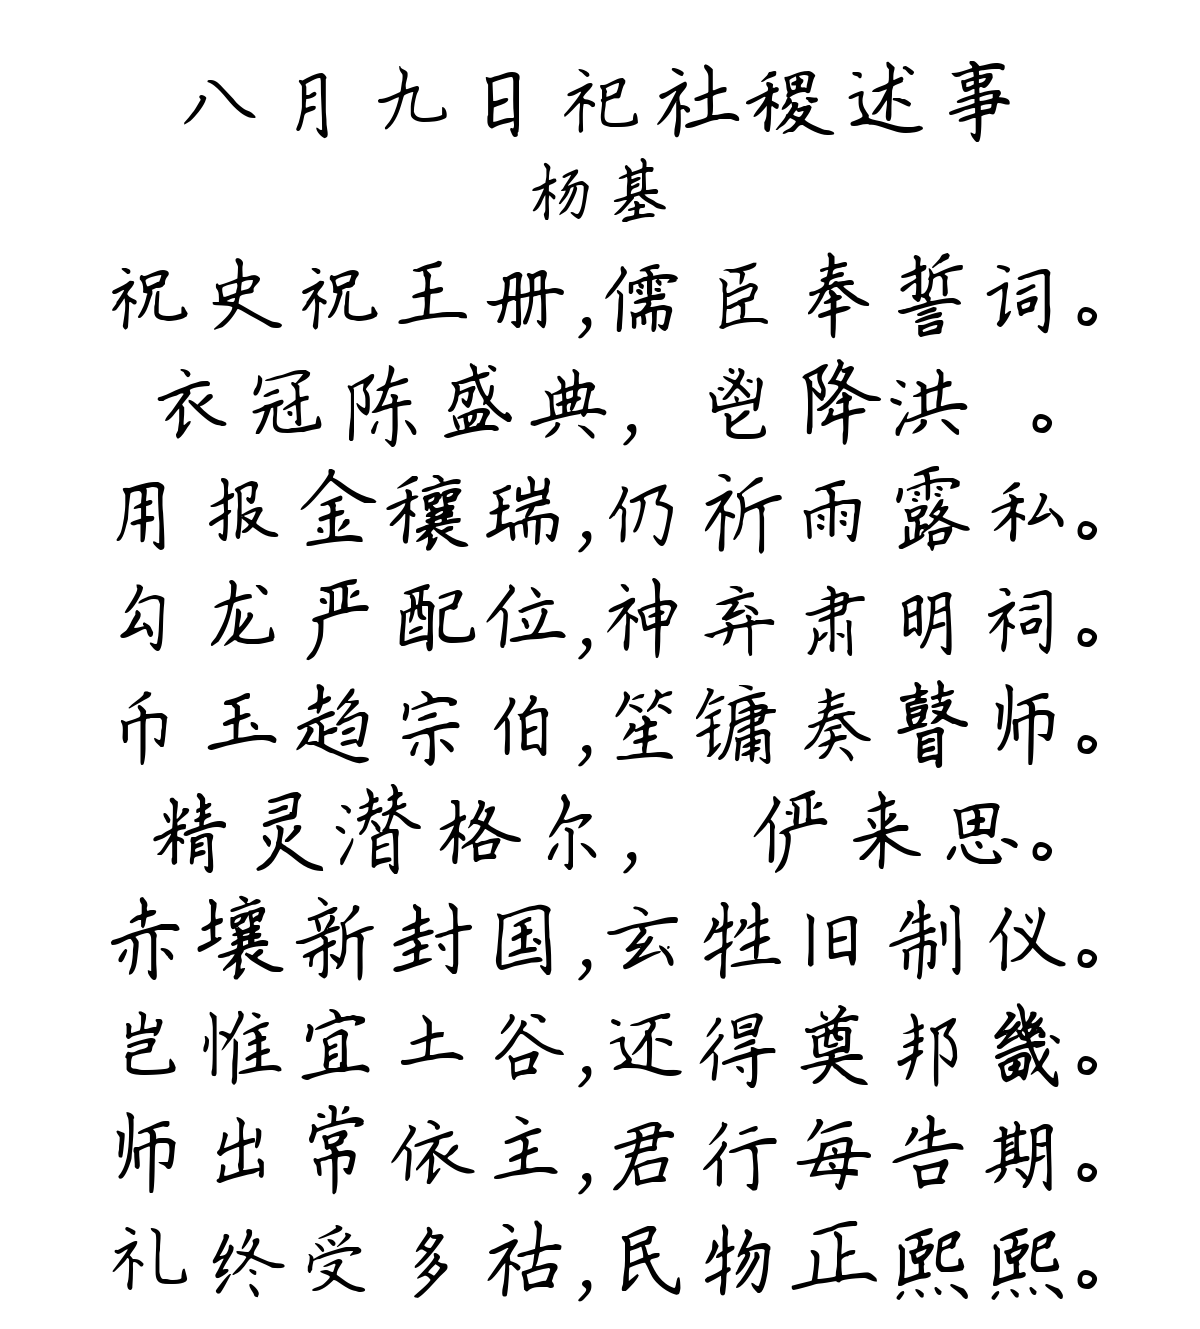 八月九日祀社稷述事
杨基
祝史祝王册,儒臣奉誓词。
衣冠陈盛典, 鬯降洪 。
用报金穰瑞,仍祈雨露私。
勾龙严配位,神弃肃明祠。
币玉趋宗伯,笙镛奏瞽师。
精灵潜格尔, 俨来思。
赤壤新封国,玄牲旧制仪。
岂惟宜土谷,还得奠邦畿。
师出常依主,君行每告期。
礼终受多祜,民物正熙熙。